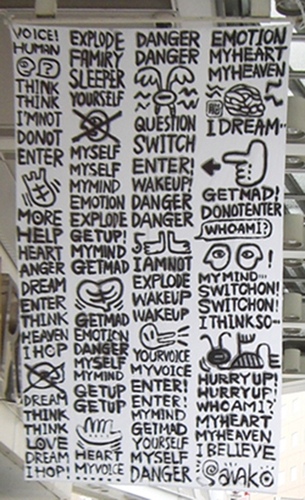 VOICE!
HUMAN
THINK
THINK
I'MNOT
DONOT
ENTER
MORE
HELP
HEART
ANGER
DREAM
ENTER
THINK
HEAVEN
I HOP
DREAM
THINK
THINK
LOVE
DREAM
I HOP!
EXPLODE
FAMIRY
SLEEPER
YOURSELF
MYSELF
MYSELF
MYMIND
EMOTION
EXPLODE
GETUP!
MYMIND
GETMAD
GETMAD
EMOTION
DANGER
MYSELF
MYMIND
GETUP
GETUP
HEART
MYVOICE
DANGER
DANGER
QUESTION
SWITCH
ENTER!
WAKEUP!
DANGER
DANGER
IAMNOT
EXPLODE
WAKEUP
WAKEUP
YOURVOICE
MYVOICE
ENTER!
ENTER!
MYMIND
GETMAD
YOURSELF
MYSELF
DANGER
EMOTION
MYHEART
MYHEAVEN
I DREAM..
GETMAD!
DONOTENTER
WHOAMI?
MYMIND...
SWITCHON!
SWITCHON!
ITHINKSO...
HURRYUP!
HURRYUP!
WHOAMI?
MYHEART
MYHEAVEN
I BELIEVE
Sawako